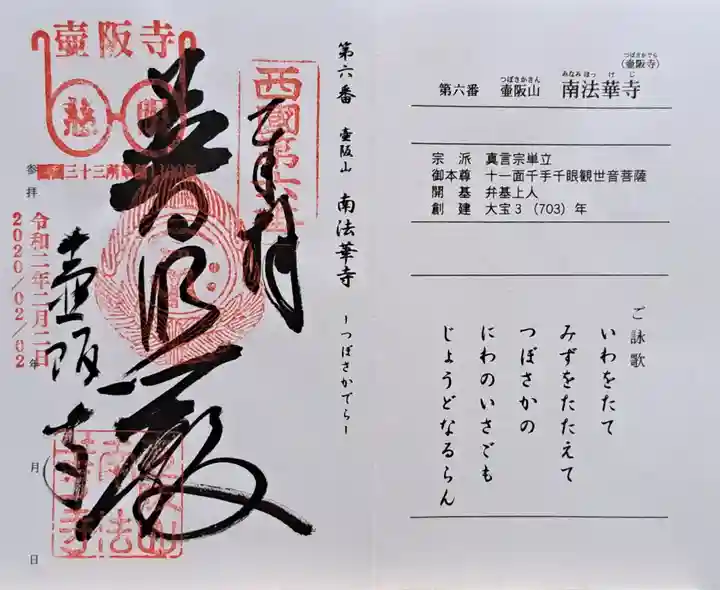 (壷阪寺)
つぼさかでら
第六番 壷阪山 南法華寺
つぼさかさん みなみほっけじ
宗派 真言宗単立
御本尊 十一面千手千眼観世音菩薩
開基 弁基上人
創建 大宝3(703)年
ご詠歌
いわをたて
みずをたたえて
つぼさかの
にわのいさごも
じょうどなるらん
第六番 壷阪山 南法華寺 ーつぼさかでらー
壷阪寺
慈眼
西國第六番
奉拝
普照殿
壷阪寺
参拝 年 月 日
令和二年二月二日
2020/02/02